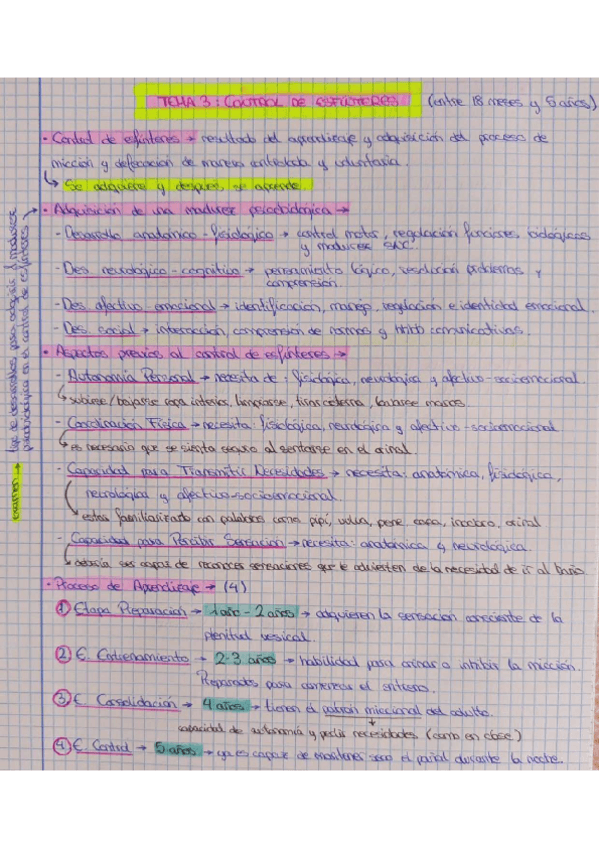 TEMA 3: CONTROL DE ESFÍNTERES (entre 18 meses y 5 años)
· Control de esfínteres → resultado del aprendizaje y adquisición del proceso de
micción y defecación de manera controlada y voluntaria.
↳ Se adquiere y después, se aprende.
· Adquisición de una madurez psicobiológica →
- Desarrollo anatómico-fisiológico → control motor, regulación funciones, biológicas
y madurez SNC.
- Des. neurológico-cognitivo → pensamiento lógico, resolución problemas y
comprensión.
- Des. afectivo-emocional → identificación, manejo, regulación e identidad emocional.
- Des. social → interacción, comprensión de normas y comunicativas.
examen → tipo de desarrollos para adquirir
psicobiológica en el control de esfínteres
· Aspectos previos al control de esfínteres →
- Autonomía Personal → necesita de: fisiológica, neurológica y afectivo-socioemocional.
↳ subirse/bajarse ropa interior, limpiarse, tirar cisterna, lavarse manos.
- Coordinación Física → necesita: fisiológica, neurológica y afectivo-socioemocional
↳ es necesario que se sienta seguro al sentarse en el orinal.
- Capacidad para Transmitir Necesidades → necesita: anatómica, fisiológica,
neurológica y afectivo-socioemocional.
↳ estar familiarizado con palabras como pipí, vulva, pene, caca, inodoro, orinal
- Capacidad para Percibir Sensación → necesita: anatómica y neurológica.
↳ debería ser capaz de reconocer sensaciones que le advierten de la necesidad de ir al baño.
· Proceso de Aprendizaje → (4)
① Etapa Preparación → 1 año - 2 años → adquieren la sensación consciente de la
plenitud vesical.
② E. Entrenamiento → 2-3 años → habilidad para orinar o inhibir la micción.
Preparados para comenzar el entreno.
③ E. Consolidación → 4 años → tienen el patrón miccional del adulto.
capacidad de autonomía y pedir necesidades (como en clase)
④ E. Control → 5 años → ya es capaz de mantener seco el pañal durante la noche.